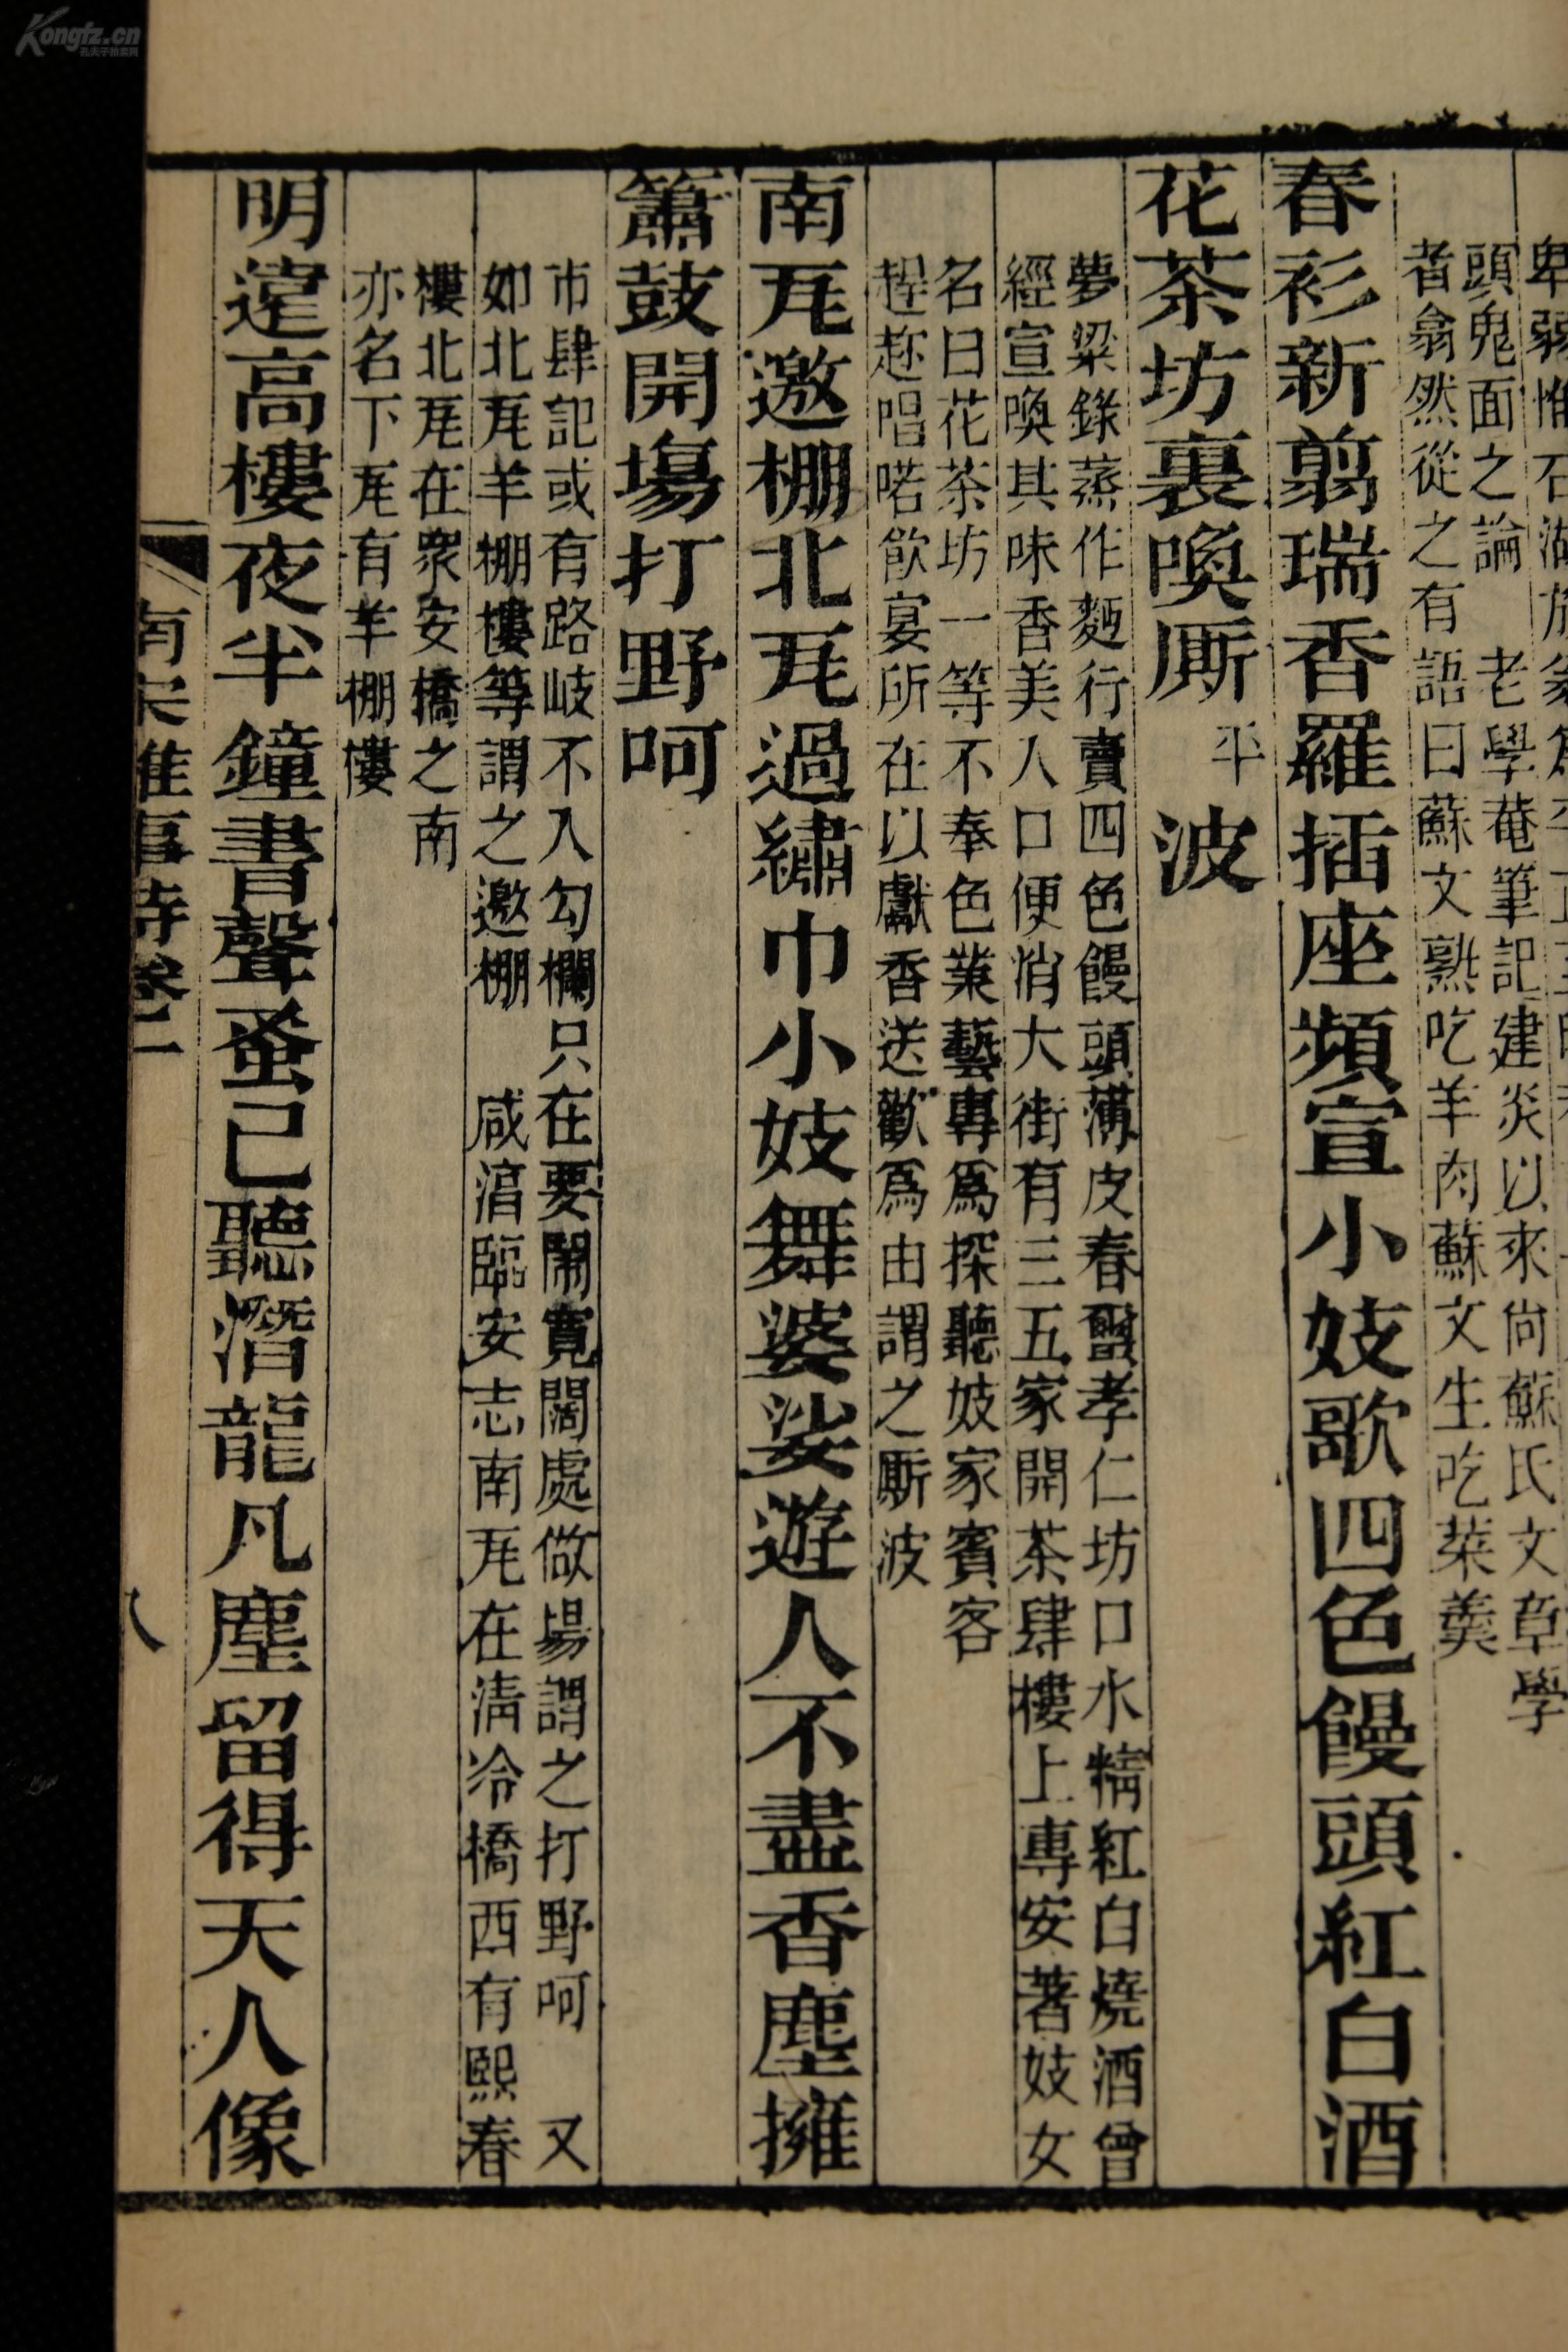 卑弱惟石湖
頭鬼面之論　老學菴筆記建炎以來尚蘇氏文章學
者翕然從之有語曰蘇文熟吃羊肉蘇文生吃菜羹
春衫新翦瑞香羅插座頻宣小妓歌四色饅頭紅白酒
花茶坊裏喚厮平波
夢粱錄蒸作麵行賣四色饅頭薄皮春蠒孝仁坊口水精紅白燒酒曾
經宣喚其味香美入口便消大街有三五家開茶肆樓上專安著妓女
名曰花茶坊一等不奉色業藝專爲探聽妓家賓客
趕趂唱喏飲宴所在以獻香送歡爲由謂之厮波
南瓦邀棚北瓦過繡巾小妓舞婆娑遊人不盡香塵擁
簫鼓開塲打野呵
市肆記或有路岐不入勾欄只在耍鬧寬闊處做場謂之打野呵　又
如北瓦羊棚樓等謂之邀棚　咸湻臨安志南瓦在清冷橋西有熙春
樓北瓦在衆安橋之南
亦名下瓦有羊棚樓
明遠高樓夜半鐘書聲蚤已聽潛龍凡塵留得天人像
南宋雜事詩卷二
八
Kongfz.cn
孔夫子拍卖网